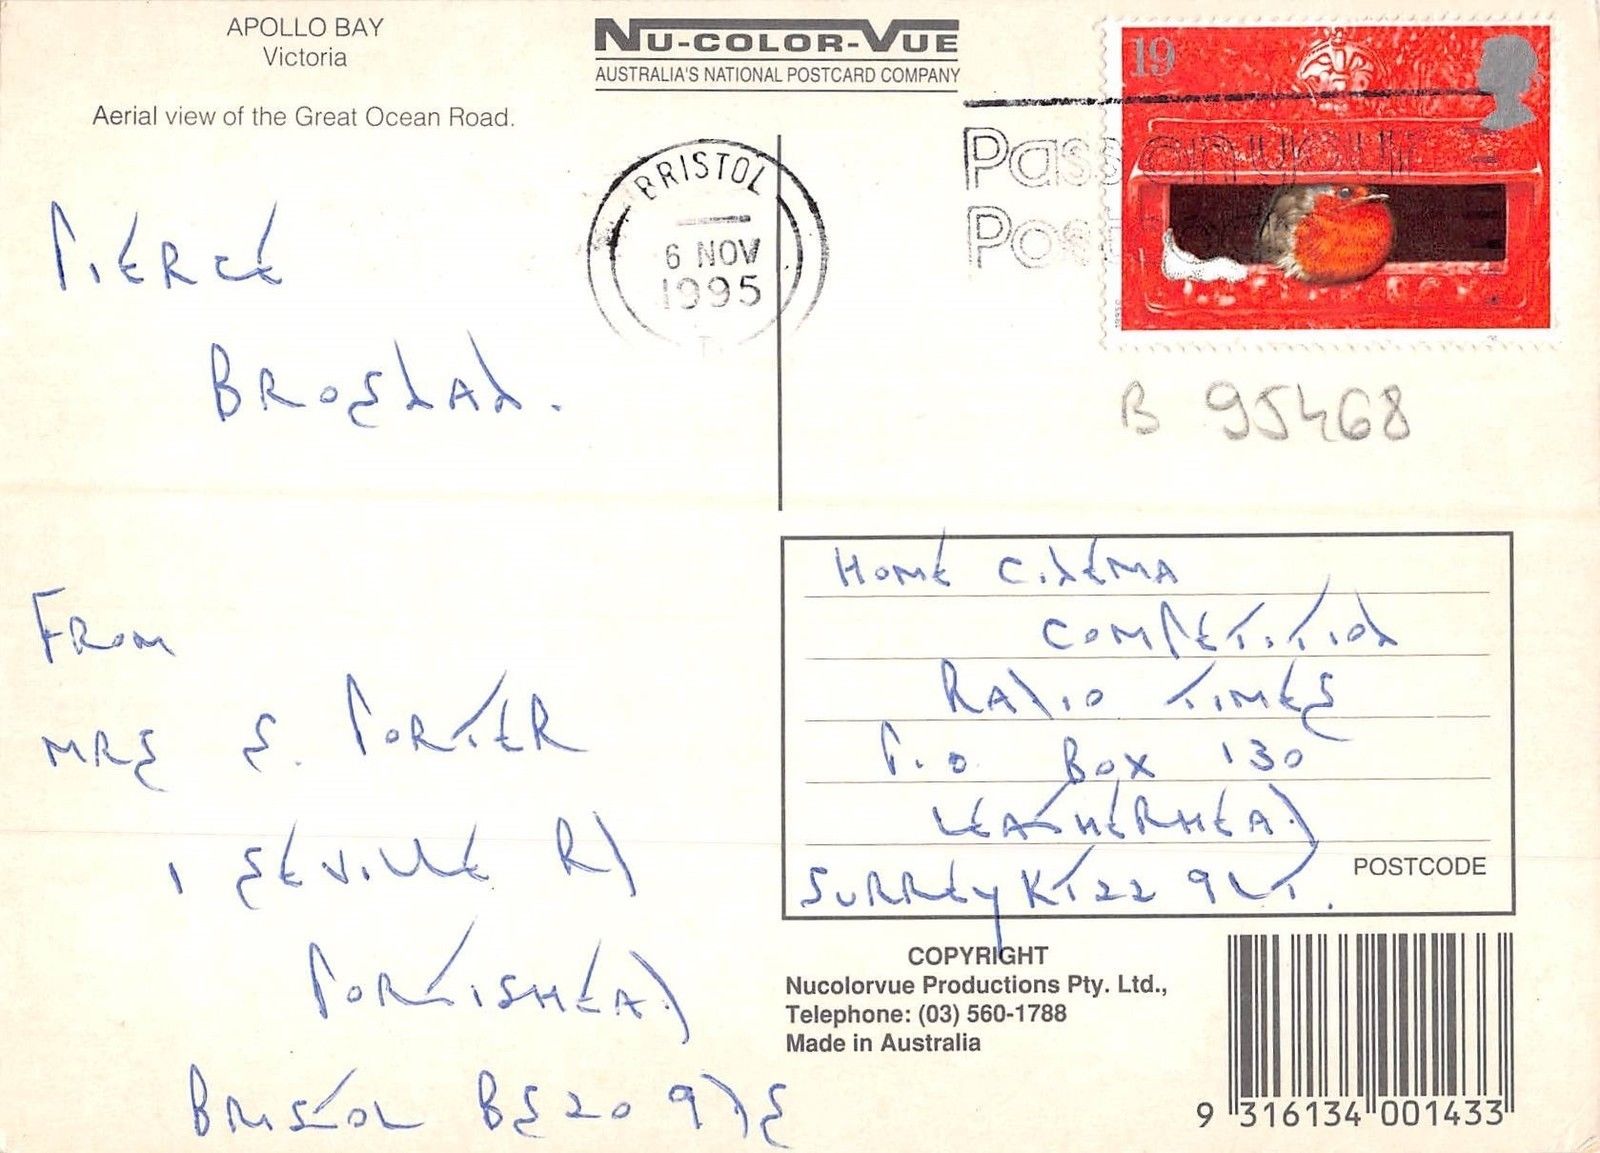 APOLLO BAY
Victoria
Aerial view of the Great Ocean Road.
NU-COLOR-VUE
AUSTRALIA'S NATIONAL POSTCARD COMPANY
BRISTOL
6 NOV
1995
Pass on your
Post
19
B 95468
PIERCE
BROSNAN.
FROM
MRS S. PORTER
1 SEVILLE RD
PORTISHEAD
BRISTOL BS20 9DS
HOME CINEMA
COMPETITION
RADIO TIMES
P.O BOX 130
LEATHERHEAD
SURREY KT22 9LT.
POSTCODE
COPYRIGHT
Nucolorvue Productions Pty. Ltd.,
Telephone: (03) 560-1788
Made in Australia
9 316134 001433